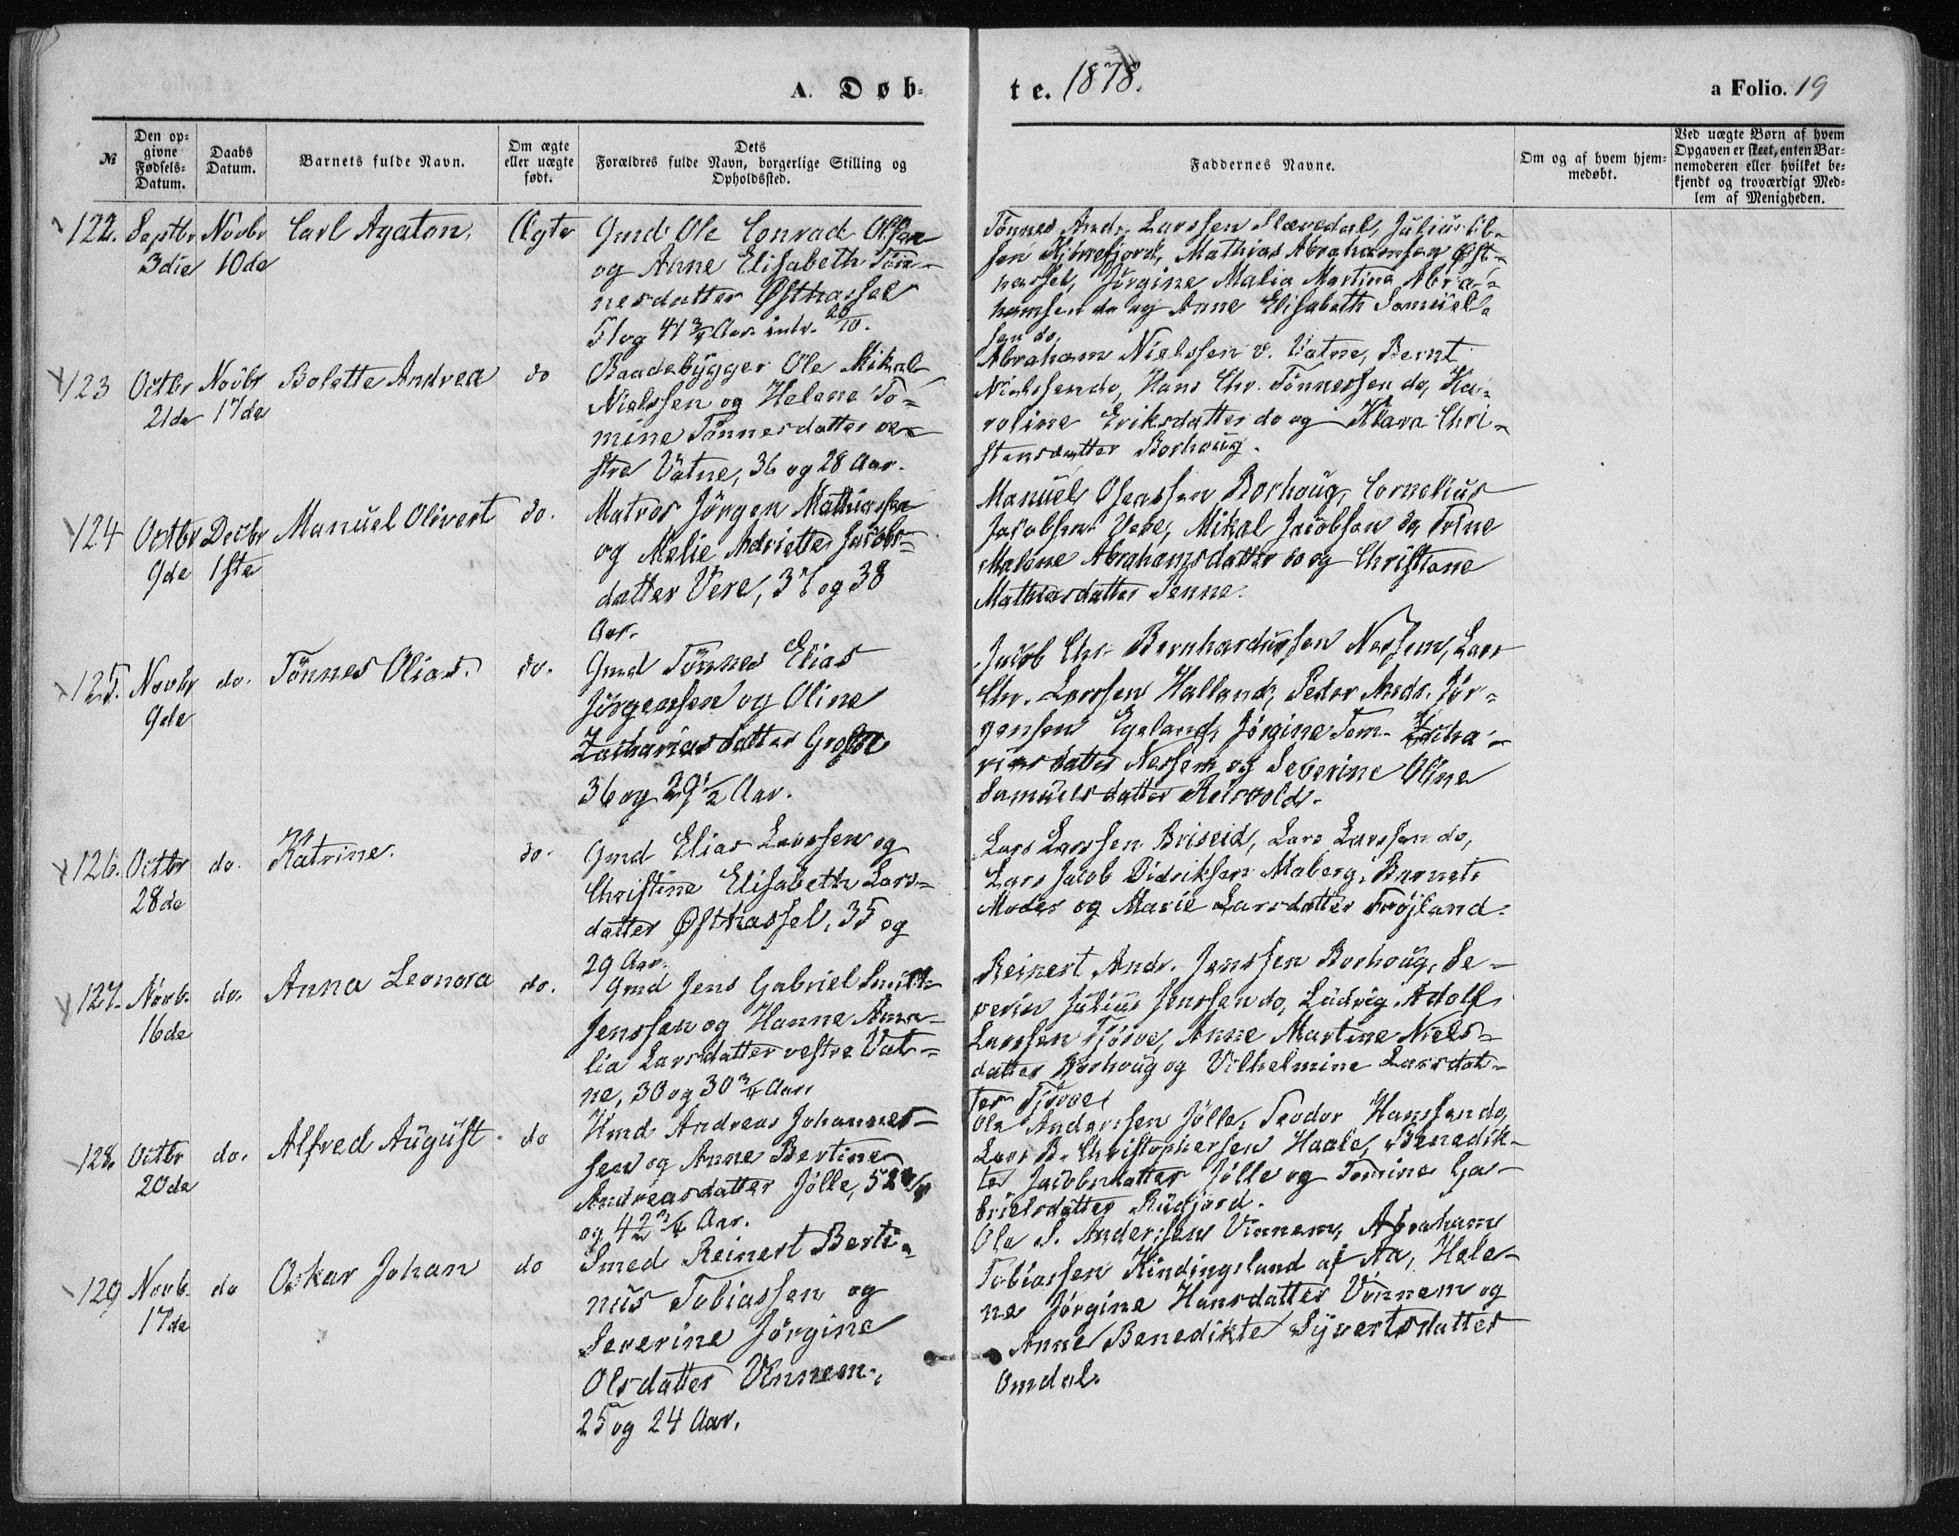 A. Døb-
te. 1878.
a Folio. 19
№
Den op-
givne
Fødsels-
Datum.
Daabs
Datum.
Barnets fulde Navn.
Om ægte
eller uægte
født.
Dets
Forældres fulde Navn, borgerlige Stilling og
Opholdssted.
Faddernes Navne.
Om og af hvem hjem-
medøbt.
Ved uægte Børn af hvem
Opgaven er skeet, enten Bar-
nemoderen eller hvilket be-
kjendt og troværdigt Med-
lem af Menigheden.
122. Septbr 3die
Novbr 10de
Carl Agaton.
Ægte
Gmd Ole Conrad Olsen
og Anne Elisabeth Tøn-
nesdatter Østhassel
51 og 41 3/4 Aar. intr. 20/10.
Tönnes Andr. Larssen Skarsdal, Julius Ol-
sen Mathias Abrahamsen Øst-
hassel, Jörgine Malia Martina Abra-
hamsen do og Anne Elisabeth Samuel-
sen do.
123 Octbr 21de
Novbr 17de
Bolette Andrea
do
Baadebygger Ole Mikal
Nielssen og Helene To-
mine Tönnesdatter ve-
stre Vatne, 36 og 28 Aar.
Abraham Nielssen v. Vatne, Bernt
Nielssen do, Hans Chr. Tönnessen do, Ka-
roline Eriksdatter do og Klara Chri-
stensdatter Borhoug.
124 Octbr 9de
Decbr 1ste
Manuel Olivert
do.
Matros Jörgen Mathiassen
og Malie Adriette Jacobs-
datter Vere, 37 og 38
Aar.
Manuel Oseassen Borhoug, Cornelius
Jacobsen Vere, Mikal Jacobsen do, Trine
Malene Abrahamsdatter do og Christiane
Mathiasdatter Penne.
125. Novbr 9de
do.
Tönnes Olias.
do.
Gmd Tönnes Elias
Jörgensen og Oline
Zachariasdatter
36 og 29 1/2 Aar.
Jacob Chr. Bernhardussen Nesheim, Lars
Chr. Larssen Halland, Peder Andr. Jör-
gensen Egeland, Jörgine Tom. Zacha-
riasdatter og Severine Oline
Samuelsdatter
126. Octbr 28de
do.
Katrine.
do.
Gmd Elias Larssen og
Christine Elisabeth Lars-
datter Østhassel, 35 og
29 Aar.
Lars Larssen Briseid, Lars Larssen do,
Lars Jacob Didriksen Maberg, Barnets
Moder og Marie Larsdatter Fröjland.
127. Novb. 16de
do.
Anna Leonora
do.
Gmd Jens Gabriel Smith
Jenssen og Hanne Ama-
lia Larsdatter vestre Vat-
ne, 30 og 30 3/4 Aar.
Reinert Andr. Jenssen Borhoug, Se-
verin Julius Jenssen do, Ludvig Adolf
Larssen Tjörve, Anne Martine Niels-
datter Borhoug og Vilhelmine Larsdat-
ter Tjörve.
128. Octbr 20de
do.
Alfred August.
do
Hmd Andreas Johannes-
sen og Anne Bertine
Andreasdatter Jölle, 52
og 42 3/4 Aar.
Ole Anderssen Jölle, Teodor Hanssen do,
Lars B. Christophersen Haale, Benedik-
te Jacobsdatter Jölle og Tomine Ga-
brielsdatter Rudjord.
129 Novb. 17de
do
Oskar Johan
do
Smed Reinert Berti-
nus Tobiassen og
Severine Jörgine
Olsdatter Vennem,
25 og 24 Aar.
Ole S. Anderssen Vinnem, Abraham
Tobiassen Kindingsland af Aa, Hele-
ne Jörgine Hansdatter Vinnem og
Anne Benedikte Syvertsdatter
Omdal.